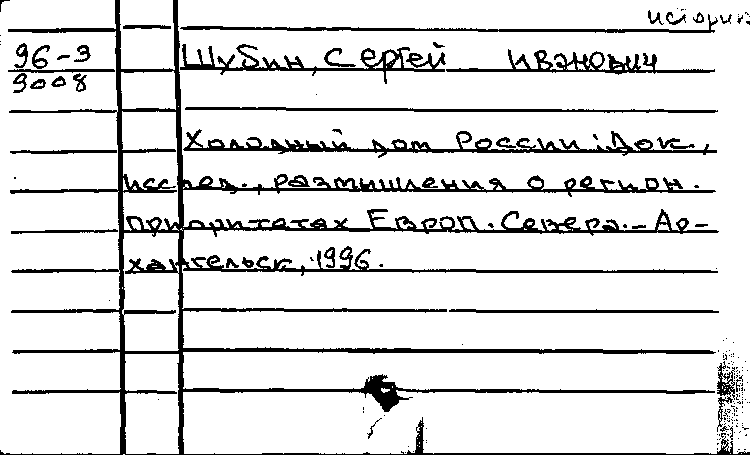 истории
96-3 Шубин, Сергей Иванович
9008
Холодный дом России: Док.,
исслед., размышления о регион.
приоритетах Европ. Севера.-Ар-
хангельск, 1996.